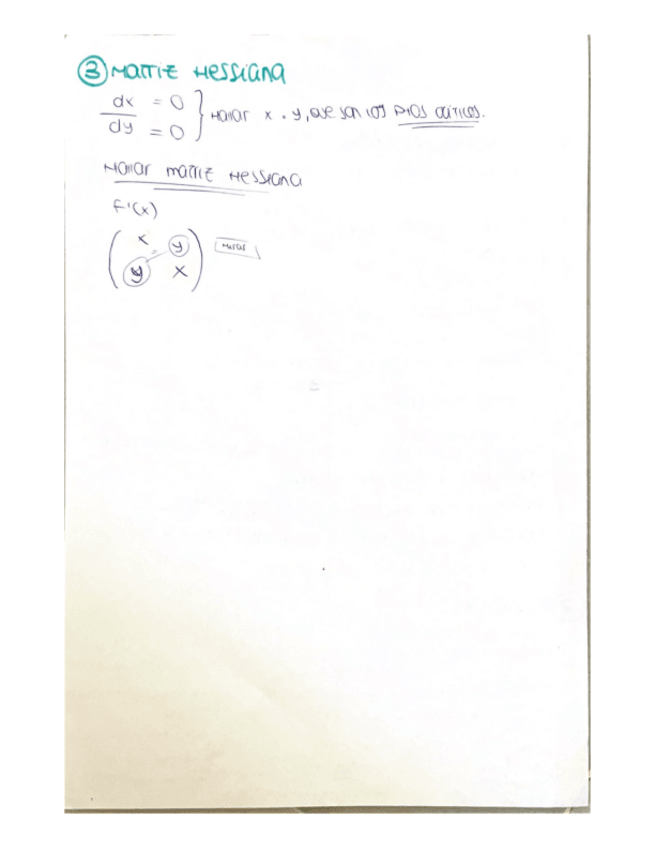 ③ MATRIZ HESSIANA
dx = 0 } HALLAR x · y, QUE SON LOS PTOS CRITICOS.
dy = 0
HALLAR MATRIZ HESSIANA
F'(x)
( x y )
( y x )